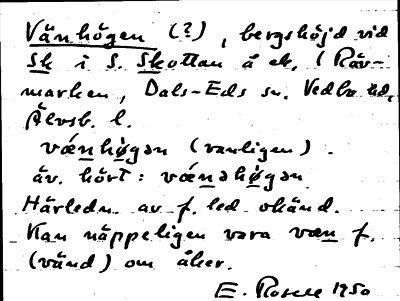 Vänhögen (?), bergshöjd vid
Sk i S. Skottan å ek. (Räv-
marken, Dals-Eds sn. Vedbo hd,
Älvsb. l.
vǽnhøgən (vanligen).
äv. hört: vǽnəhøgən
Härledn. av f. led okänd.
Kan näppeligen vara væn f.
(vänd) om åker.
E. Rosell 1950